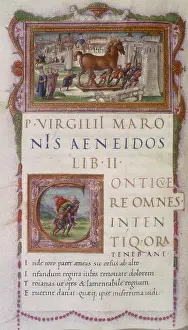 P·VIRGILII MARO
NIS AENEIDOS
LIB·II·
CONTICVE
RE OMNES
INTEN
TIQ·ORA
TENEBANT·
I nde toro pater aeneas sic orsus ab alto
I nfandum regina iubes renouare dolorem
T roianas ut opes & lamentabile regnum
E ruerint danai: quæq; ipse miserrima uidi